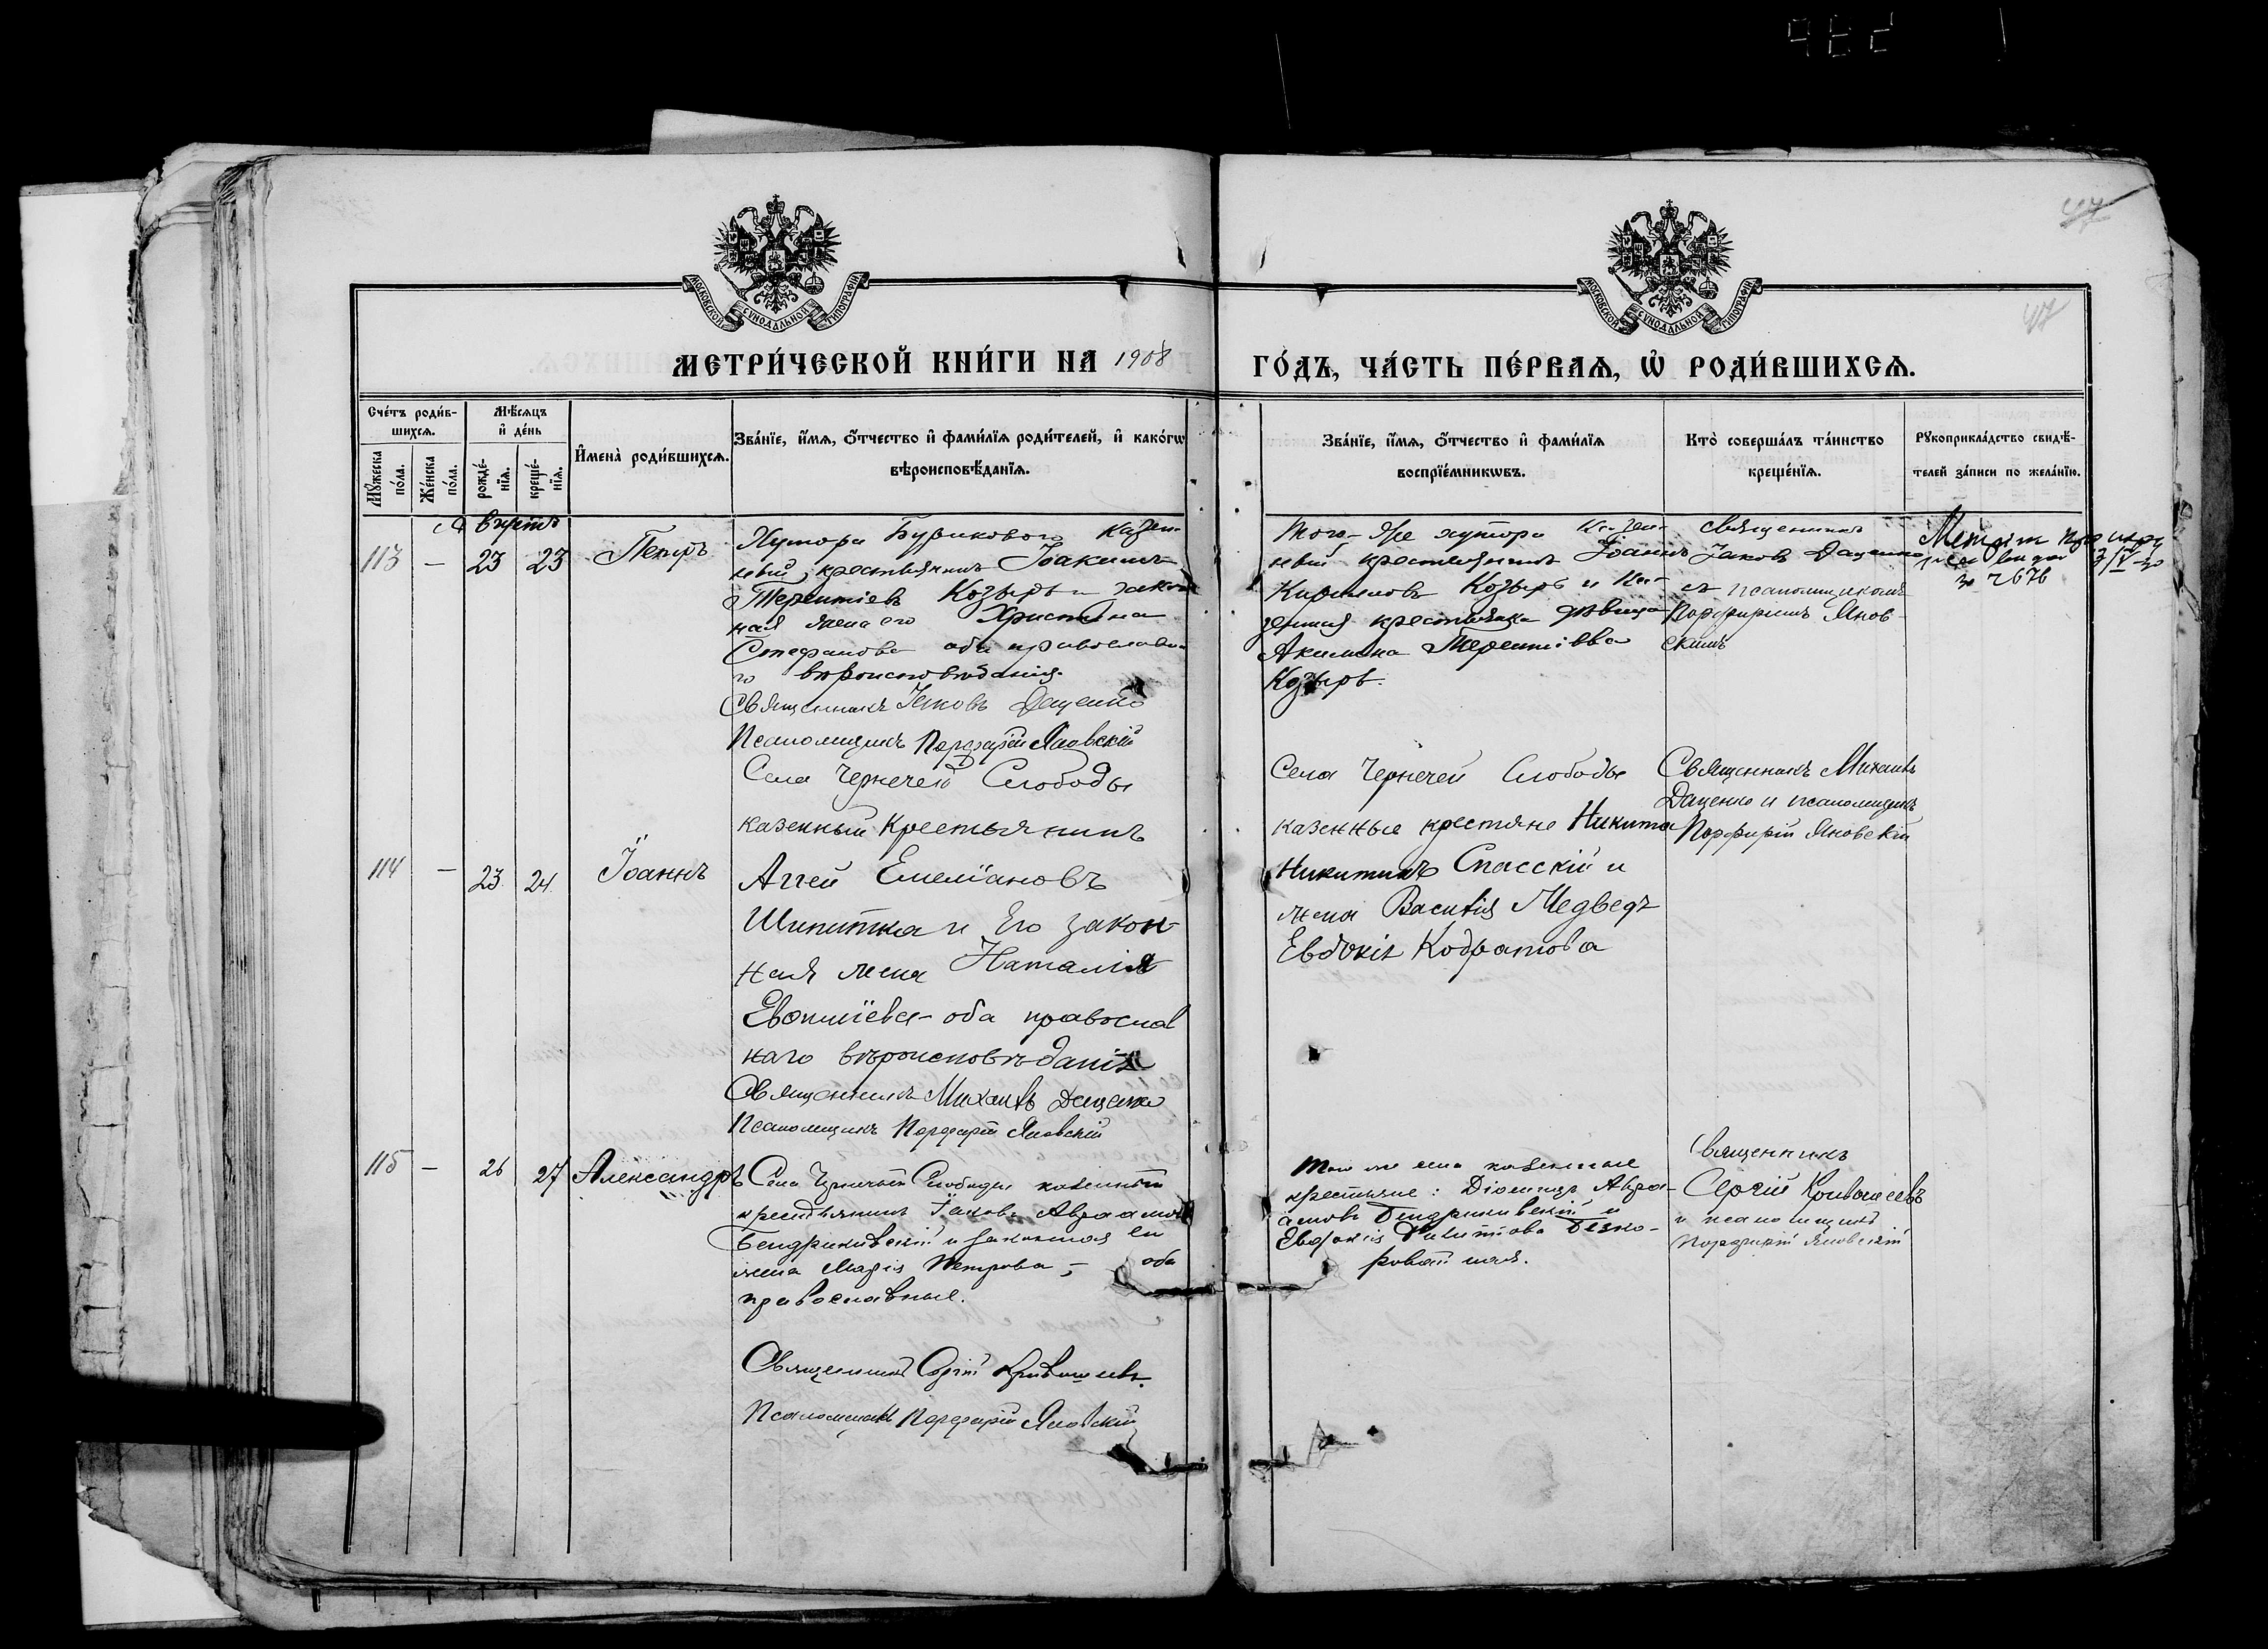 47
47
МОСКОВСКОЙ СѴНОДАЛЬНОЙ ТИПОГРАФІИ
МОСКОВСКОЙ СѴНОДАЛЬНОЙ ТИПОГРАФІИ
МЕТРИ́ЧЕСКОЙ КНИ́ГИ НА 1908
ГО́ДЪ, ЧА́СТЬ ПЕ́РВАѦ, Ѡ҆ РОДИ́ВШИХСѦ.
Сче́тъ роди́в-
шихсѧ.
Мꙋ́жеска
по́ла.
Же́нска
по́ла.
Мѣ́сѧцъ
и҆ де́нь
рожде́-
нїѧ.
креще́-
нїѧ.
И҆мена̀ роди́вшихсѧ.
Зва́нїе, и҆́мѧ, ѻ҆́тчество и҆ фами́лїѧ роди́телей, и҆ како́гѡ
вѣроисповѣ́данїѧ.
Зва́нїе, и҆́мѧ, ѻ҆́тчество и҆ фами́лїѧ
воспрїе́мникѡвъ.
Кто̀ соверша́лъ та́инство
креще́нїѧ.
Рꙋкоприкла́дство свидѣ́-
телей за́писи по жела́нїю.
Августъ
113 — 23 23 Петръ
Хутора Бурикового Казен-
ный крестьянинъ Іоакимъ
Терентіевъ Козырь и закон
ная жена его Христина
Стефанова оба православна
го вѣроисповѣданія.
Священникъ Іаковъ Даценко
Псаломщикъ Порфирій Яновскій
Того-же хутора Казен-
ный крестьянинъ Іоаннъ
Кирилловъ Козырь и Ка-
зенная крестьянка дѣвица
Акилина Терентіева
Козырь.
Священникъ
Іаковъ Даценко
съ псаломщикомъ
Порфиріемъ Янов-
скимъ
2676
114 — 23 24 Іоаннъ
Села Чернечей Слободы
казенный Крестьянинъ
Аггей Емеліановъ
Шипитка и Его закон-
ная жена Наталія
оба православ
наго вѣроисповѣданія
Священникъ Михаилъ Даценко
Псаломщикъ Порфирій Яновскій
Села Чернечей Слободы
казенные крестяне Никита
Никитинъ Спасскій и
жена Василія Медведь
Евдокія Кодратова
Священникъ Михаилъ
Даценко и псаломщикъ
Порфирій Яновскій
115 — 26 27 Александръ
Села Чернечей Слободы казенный
крестьянинъ Іаковъ Авраамовъ
Бендриковскій и законная его
жена Марія Петрова, — оба
православные.
Священникъ Сергій
Псаломщикъ Порфирій Яновскій
Того же села казенные
крестьяне: Авра-
амовъ Бендриковскій и
Евдокія
Священникъ
Сергій
и псаломщикъ
Порфирій Яновскій